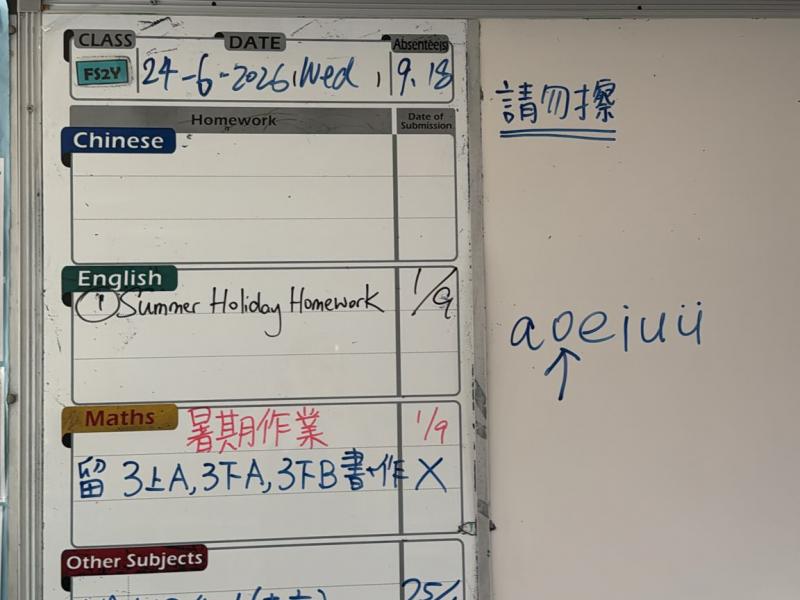 CLASS DATE Absentee(s)
FS2Y 24-6-2026, Wed, 9, 18
Homework Date of Submission
Chinese
English
① Summer Holiday Homework 1/9
Maths
暑期作業 1/9
留 3上A, 3下A, 3下B 書+作 X
Other Subjects
25/
請勿擦
a o e i u ü
↑